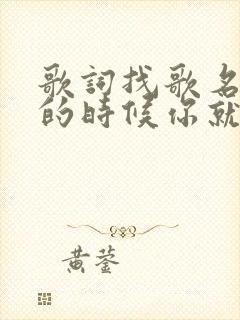 歌詞找歌名
的時候你就
黃蓥